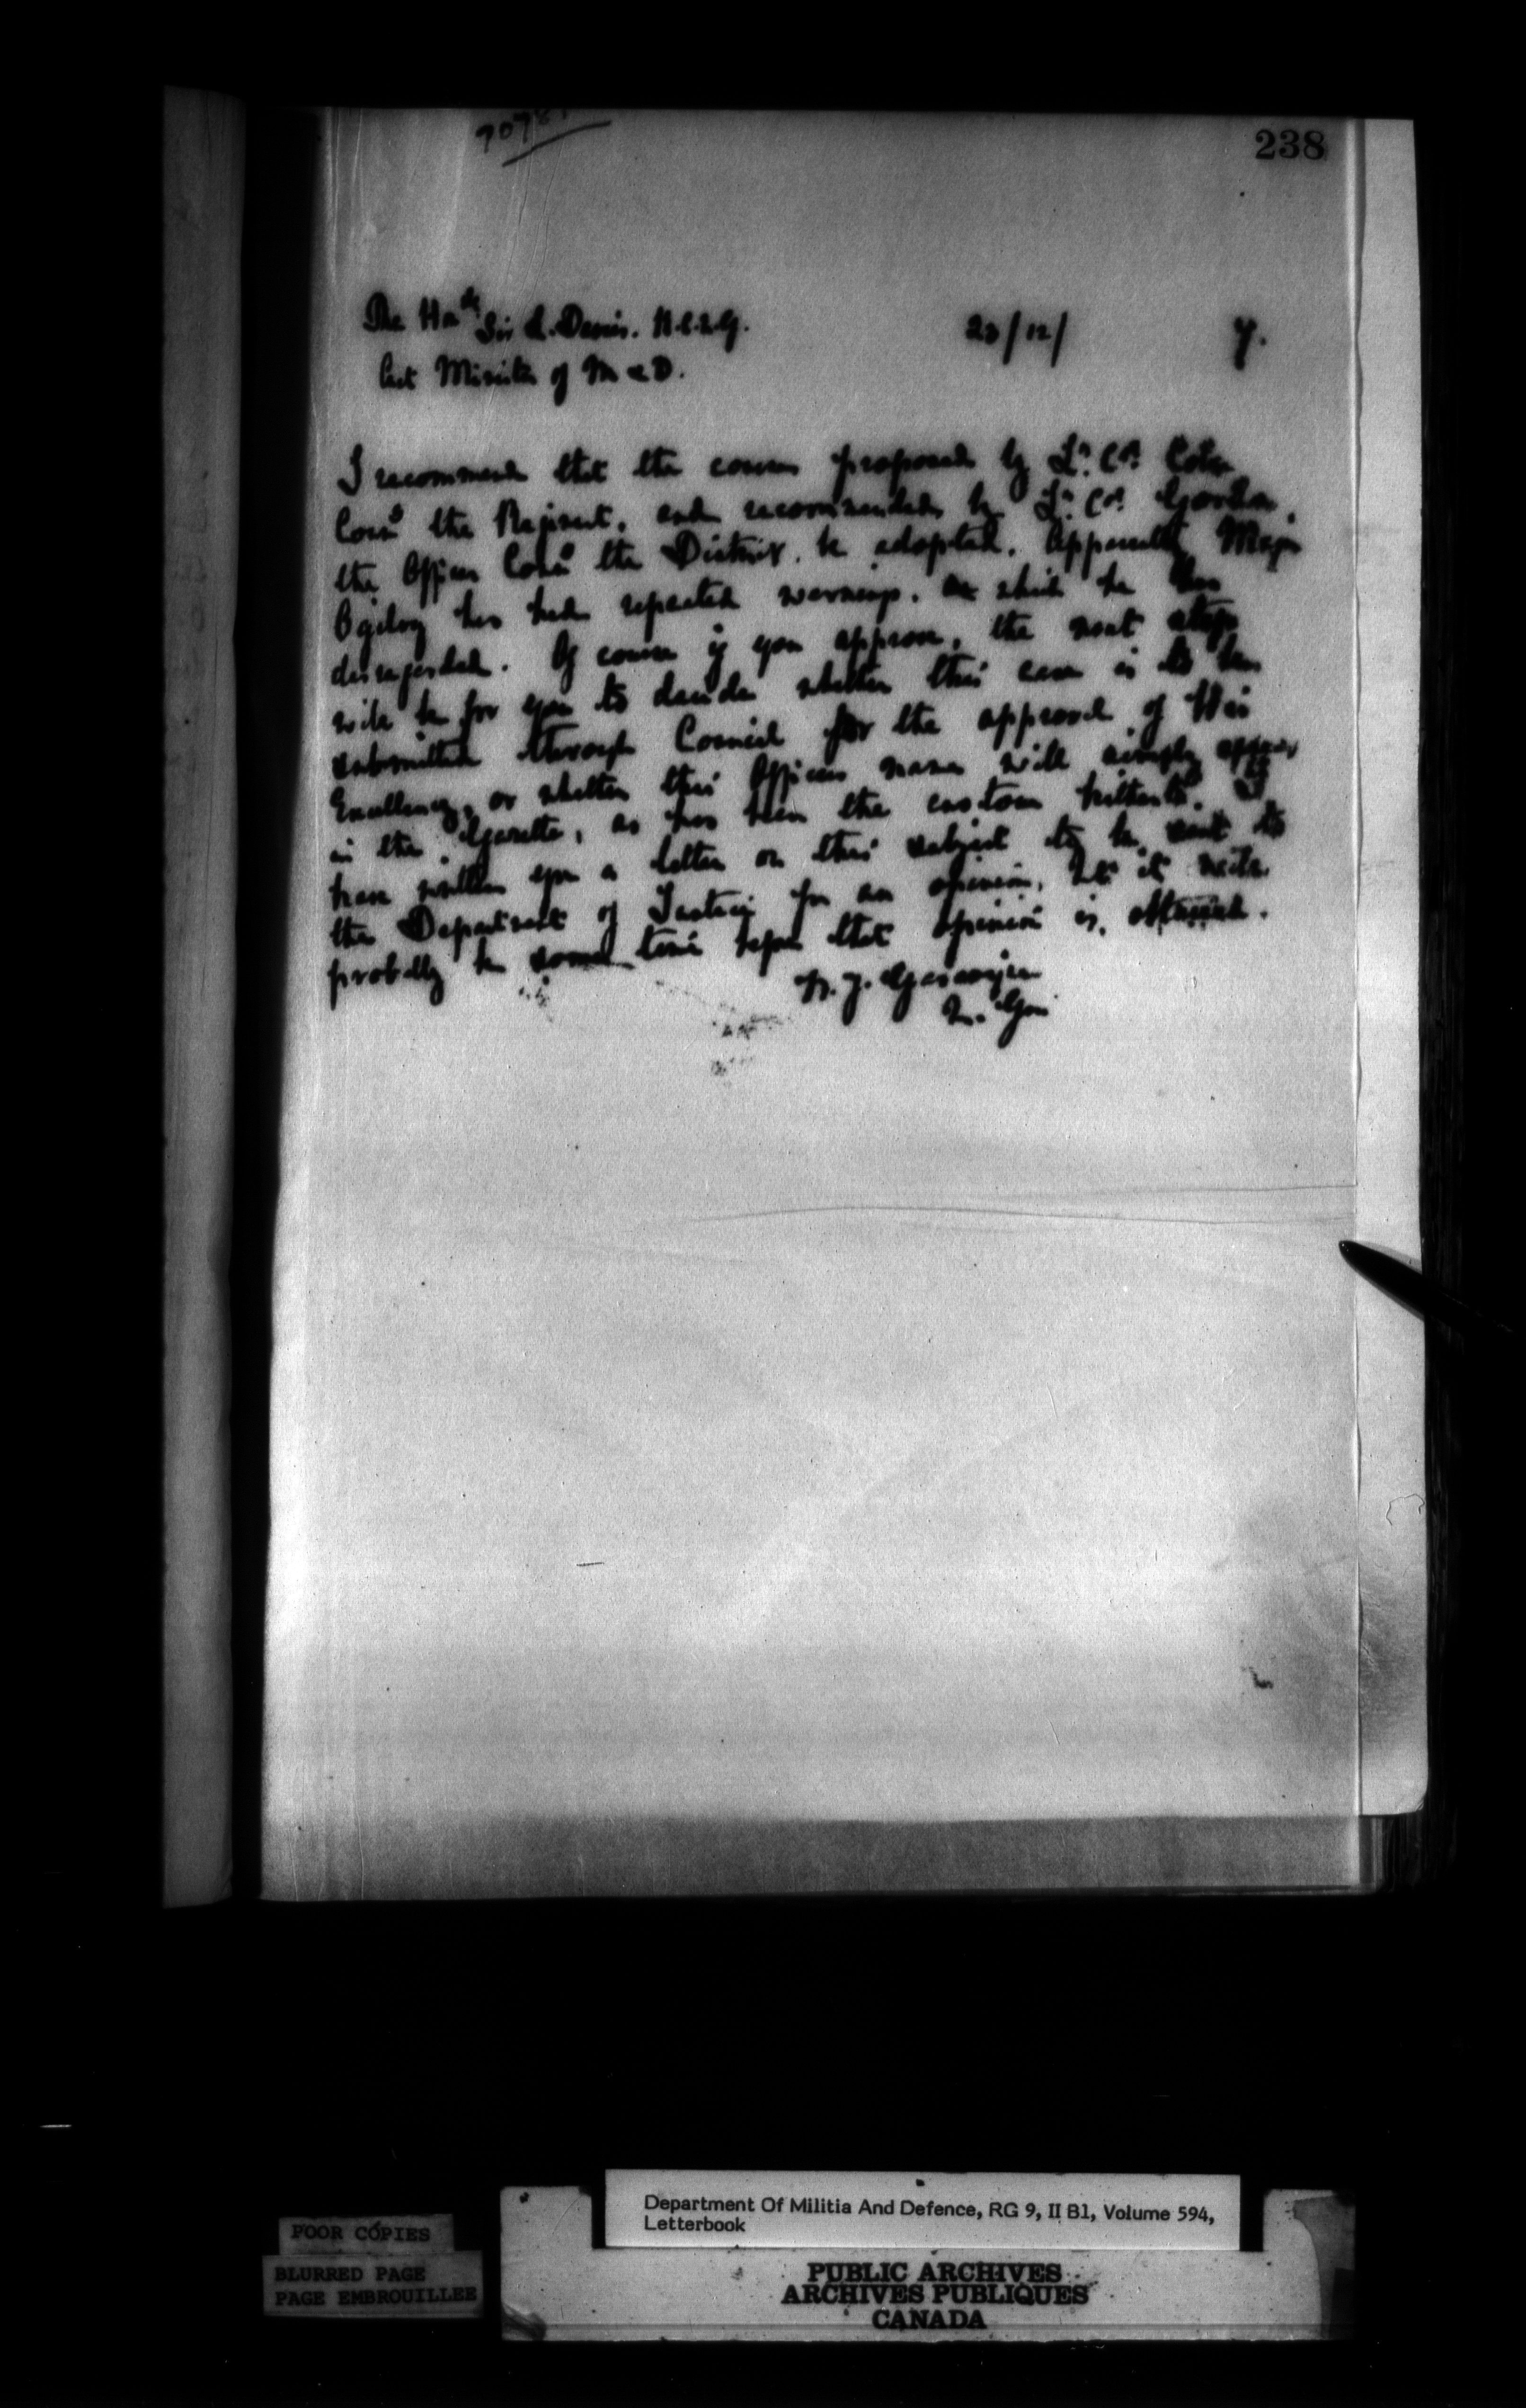 9078
238
The Honble Sir L. Davies. K.C.M.G. 23/12/ 7.
Act Minister of M & D.
I recommend that the course proposed by Lt. Col. Cole
Comg the Regiment, and recommended by Lt. Col. Gordon,
the Officer Comg the District, be adopted. Apparently Major
Ogilvy has had repeated warnings, which he has
disregarded. Of course if you approve, the next step
will be for you to decide whether this case is to be
submitted through Council for the approval of His
Excellency, or whether this Officers name will simply appear
in the Gazette, as has been the custom hitherto. I
have written you a letter on this subject to be sent to
the Department of Justice for an opinion, but it will
probably be some time before that opinion is obtained.
W. J. Gascoigne
M. Gen
POOR COPIES
BLURRED PAGE
PAGE EMBROUILLEE
Department Of Militia And Defence, RG 9, II B1, Volume 594,
Letterbook
PUBLIC ARCHIVES
ARCHIVES PUBLIQUES
CANADA